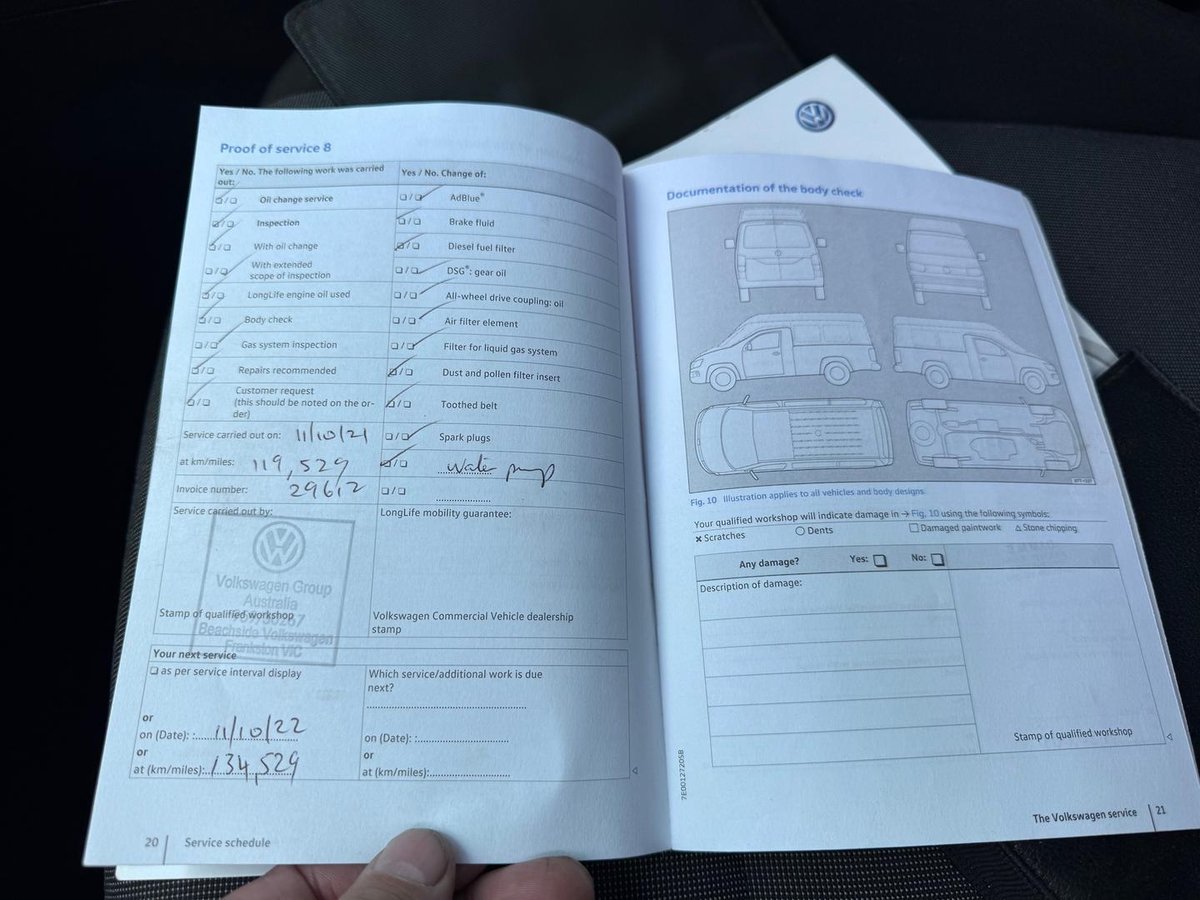 Proof of service 8
Yes / No. The following work was carried out:
Yes / No. Change of:
Oil change service
AdBlue®
Inspection
Brake fluid
With oil change
Diesel fuel filter
With extended scope of inspection
DSG®: gear oil
LongLife engine oil used
All-wheel drive coupling: oil
Body check
Air filter element
Gas system inspection
Filter for liquid gas system
Repairs recommended
Dust and pollen filter insert
Customer request
(this should be noted on the or-
der)
Toothed belt
Service carried out on: 11/10/21
Spark plugs
at km/miles: 119,529
Water pump
Invoice number:
Service carried out by:
LongLife mobility guarantee:
Volkswagen Group
Australia
Stamp of qualified workshop
Beachside Volkswagen
Frankston VIC
Volkswagen Commercial Vehicle dealership
stamp
Your next service
as per service interval display
Which service/additional work is due
next?
or
on (Date): : 11/10/22
on (Date): :
or
or
at (km/miles): 134,529
at (km/miles):
20 Service schedule
Documentation of the body check
Fig. 10 Illustration applies to all vehicles and body designs.
Your qualified workshop will indicate damage in → Fig. 10 using the following symbols:
× Scratches ○ Dents □ Damaged paintwork △ Stone chipping
Any damage? Yes: No:
Description of damage:
Stamp of qualified workshop
7E0012720SB
The Volkswagen service 21